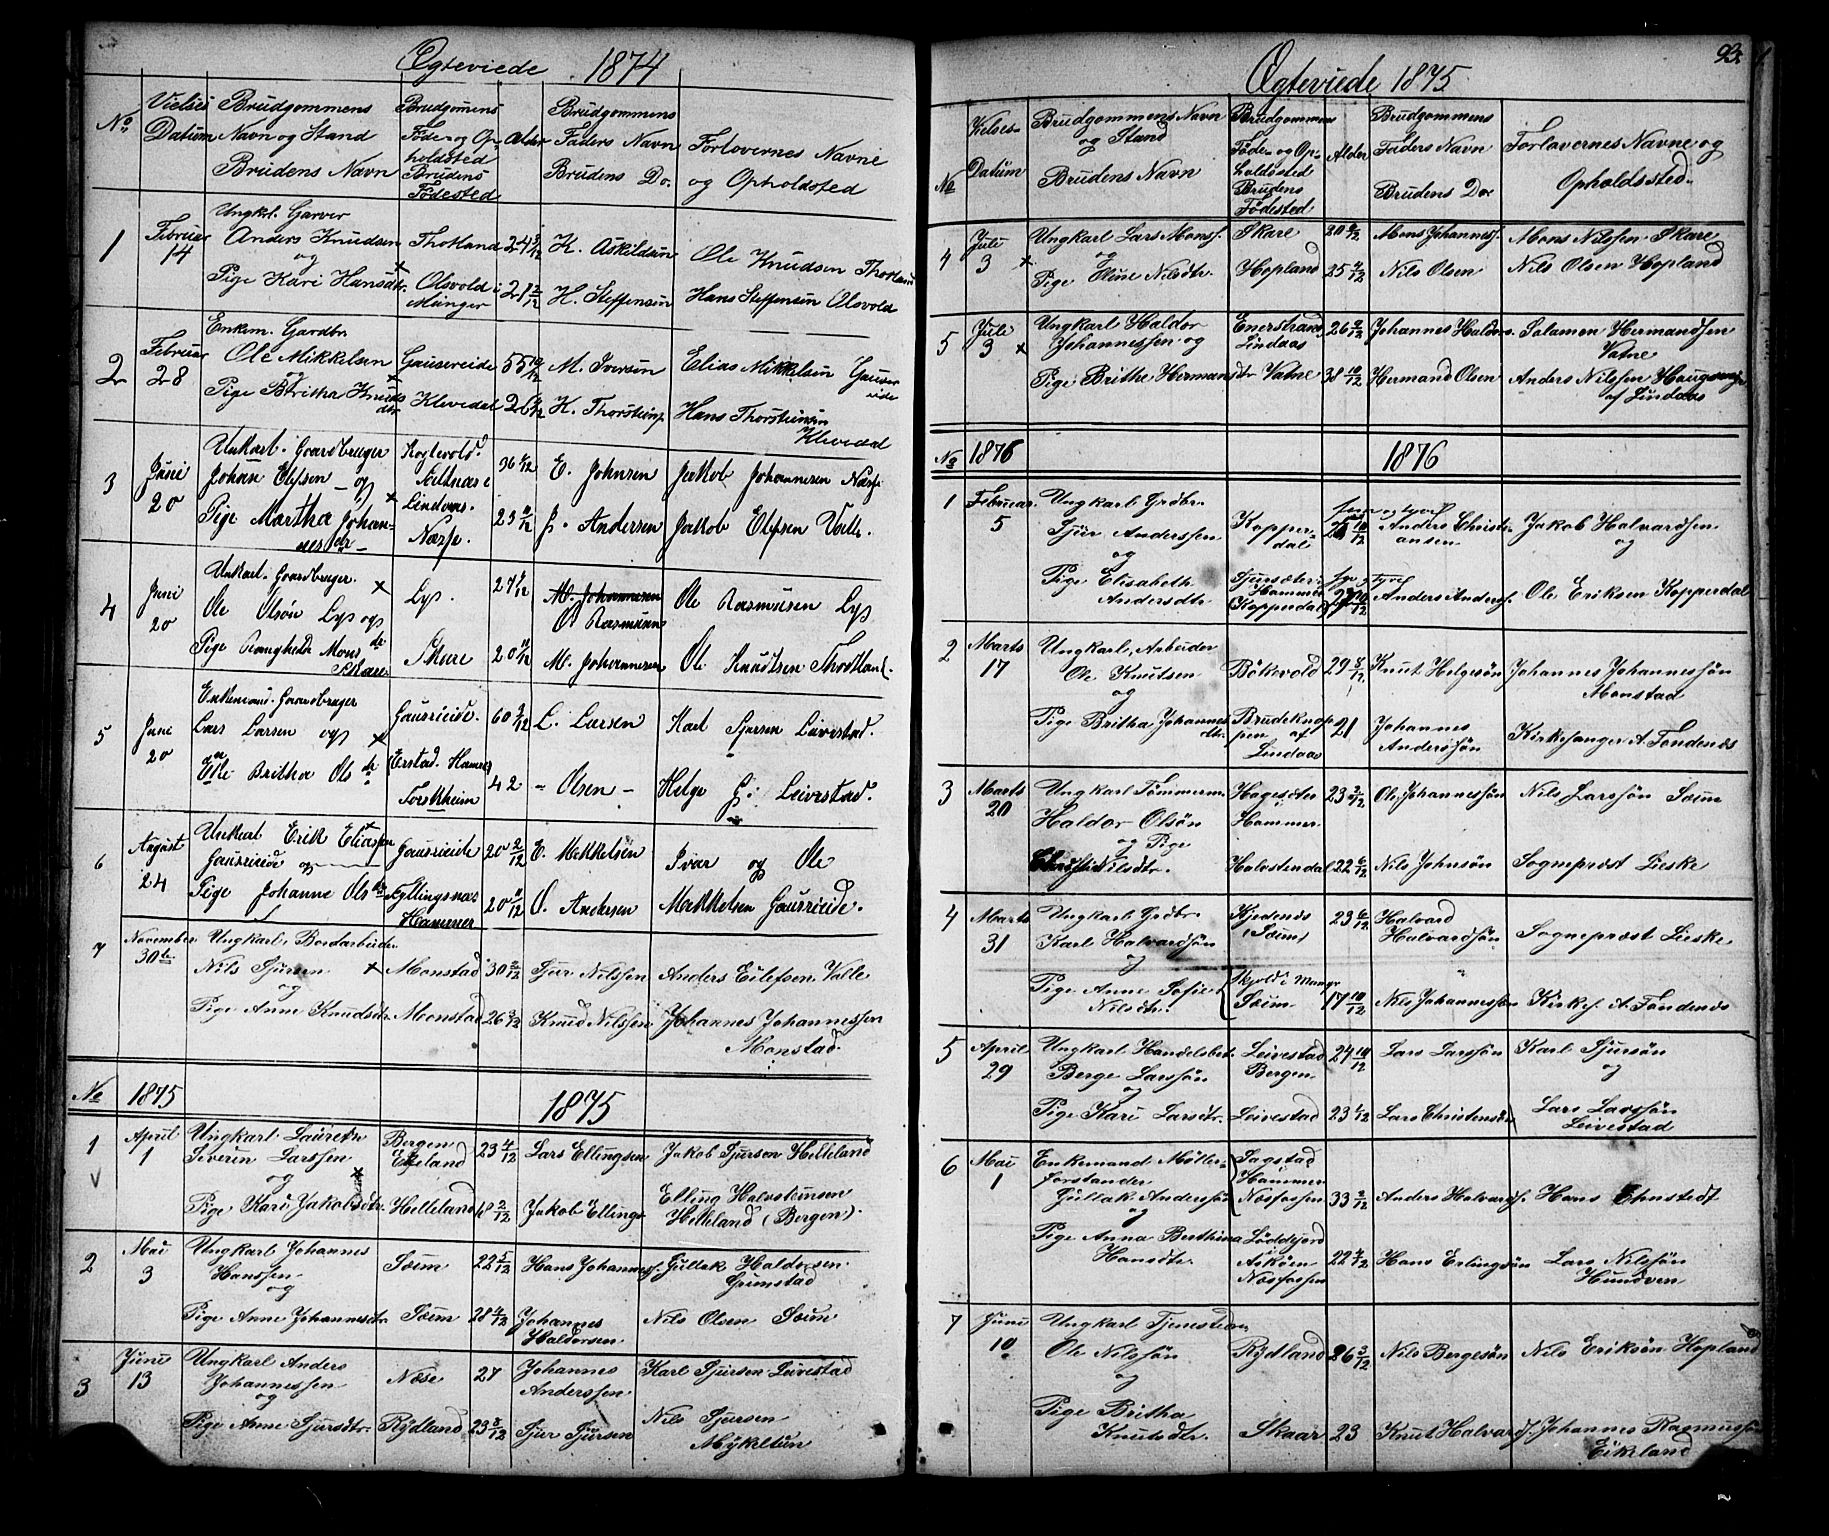 Ægteviede 1874
No
Vielses Datum
Brudgommens Navn og Stand
Brudens Navn
Brudgomens Føde og Opholdsted
Brudens Fødested
Alder
Brudgommens Faders Navn
Brudens Do.
Forlovernes Navne og Opholdsted
1
Februar 14
Ungkl. Garver
Anders Knudsen
og
Pige Kari Hansdtr.
Thotland
Olsvold i Manger
K. Askildsen
H. Steffensen
Ole Knudsen Thotland
Hans Steffensen Olsvold
2
Februar 28
Enkem. Gardbr.
Ole Mikkelsen
og
Pige Britha Knudsdtr.
Gausereide
Klevedal
55 10/12
M. Iversen
K. Thorsteins.
Elias Mikkelsen Gausereide
Hans Thorsteinsen
Klevedal
3
Juni 20
Unkarl. Gaardbruger
Johan Elefsen og
Pige Martha Johannesdtr
Lindaas
Næsse.
E. Johnsen
J. Andersen
Jakob Johannesen Næsse
Jakob Elefsen Valle.
4
Juni 20
Unkarl. Gaardbruger
Ole Olsön Lys og
Pige Rangheld Monsdtr
Skare
Lys.
Skare
M. Johannesen
O. Rasmusen
M. Johannesen
Ole Rasmusen Lys
Ole Knudtsen Thodtland.
5
Juni 20
Enkemand. Gaardbruger
Lars Larsen og
Enke Britha Olsdtr
Gausreide.
(Erstad. Hamre)
Forskheim
60 3/12
42
L. Larsen
Olsen
Karl Sjursen Leivestad.
Helge G. Leivestad.
6
August 24
Unkarl Erik Eliassen
Gausreide og
Pige Johanne Olsdtr
Gausreide
Fyllingsnæs
Hammer
20 2/12
E. Mekkelsen
O. Andersen
Ivar og Ole
Mekkelsen Gausreide.
7
November 30te
Ungkarl, Bordarbeider
Nils Sjursen
og
Pige Anne Knudsdtr.
Monstad
Monstad
Sjur Nilssen
Knud Nilssen
Anders Eilefsen Valle
Johannes Johannessen
Monstad.
No 1875 1875
1
April 1
Ungkarl Lauretn
Severin Larssen
og
Pige Kari Jakobsdtr.
Bergen
Eikeland
Helleland
23 4/12
Lars Ellingsen
Jakob Ellings
Jakob Sjursen Helleland
Elling Halvsteinsen
Helleland (Bergen).
2
Mai 3
Ungkarl Johannes
Hanssen
og
Pige Anne Johannesdtr.
Soeim
Soeim
22 5/12
28 4/12
Hans Johanness.
Johannes
Haldorsen.
Gullak Haldorsen
Grimstad
Nils Olsen Soeim
3
Juni 13
Ungkarl Anders
Johannessen
og
Pige Anne Sjursdtr.
Næse
Rydland
27
23 8/12
Johannes
Anderssen
Sjur Sjursen
Karl Sjursen Leivestad
Nils Sjursen
Mykeltun

93.
Ægteviede 1875
No
Vielses-Datum
Brudgommens Navn og Stand
Brudens Navn
Brudgommens Føde- og Opholdssted
Brudens Födested
Alder
Brudgommens Faders Navn
Brudens Do.
Forlovernes Navne og Opholdssted.
4
Juli 3
Ungkarl Lars Monss.
og
Pige Eline Nilsdtr.
Skare
Hopland
Mons Johannes.
Nils Olsen
Mons Nilssen Skare
Nils Olsen Hopland
5
Juli 3
Ungkarl Haldor
Johannessen og
Pige Brithe Hermansdtr
Lindaas
Vatne
38 10/12
Johannes Haldors.
Hermand Olsen
Salamon Hermandsen
Vatne
Anders Nilssen
af Lindaas
No 1876 1876
1
Februar 5
Ungkarl Grdbr.
Sjur Anderssen
og
Pige Elisabeth
Andersdtr.
Kopperdal
Sjursæter
Hammer
Kopperdal
Anders Christiansen
Anders Anders.
Jakob Halvardsen
og
Ole Eriksen Kopperdal
2
Marts 17
Ungkarl, Arbeider
Ole Knutsen
og
Pige Britha Johannesdtr.
Bökevold
Brudeknappen af
Lindaas
21
Knut Helgesön
Johannes
Anderssön
Johannes Johannessön
Monstad
Kirkesanger A. Tondenes
3
Marts 20
Ungkarl Tömmerm.
Haldor Olsön
og Pige
Nilsdtr.
Hagesæter
Hammer
Halvstendal
Ole Johannessön
Nils Johnsön
Nils Larssön Soeim
Sogneprest Lieske
4
Marts 31
Ungkarl Grdbr.
Karl Halvardsön
og
Pige Anne Sofie
Nilsdtr.
Kjedenes
(Soeim)
Skjold i Manger
Soeim
17 10/12
Halvard
Halvardsön
Nils Johannessön
Sogneprest Lieske
Kirkes. A. Tondenes
5
April 29
Ungkarl Handelsbet.
Berge Larssön
og
Pige Kari Larsdtr.
Leivestad
Bergen
Leivestad
24 10/12
Lars Larssön
Lars Christensön
Karl Sjursön
og
Lars Larssön
Leivestad
6
Mai 1
Enkemand Möllerforstander
Gullak Anderssön
og
Pige Anna Berthina
Hansdtr.
Sagstad
Hammer
Nosfossen
Löddfjord
Asköen
Nosfossen
Anders Halvards.
Hans Erlingsön
Hans Ehnstedt
Lars Nilssön
Hundven
7
Juni 10
Ungkarl Tjenestem
Ole Nilssön
og
Pige Britha
Knutsdtr.
Rydland
Skaar
26 3/12
23
Nils Bergesön
Knut Halvards.
Nils Eriksön Hopland
Johannes Rasmussön
Eikeland